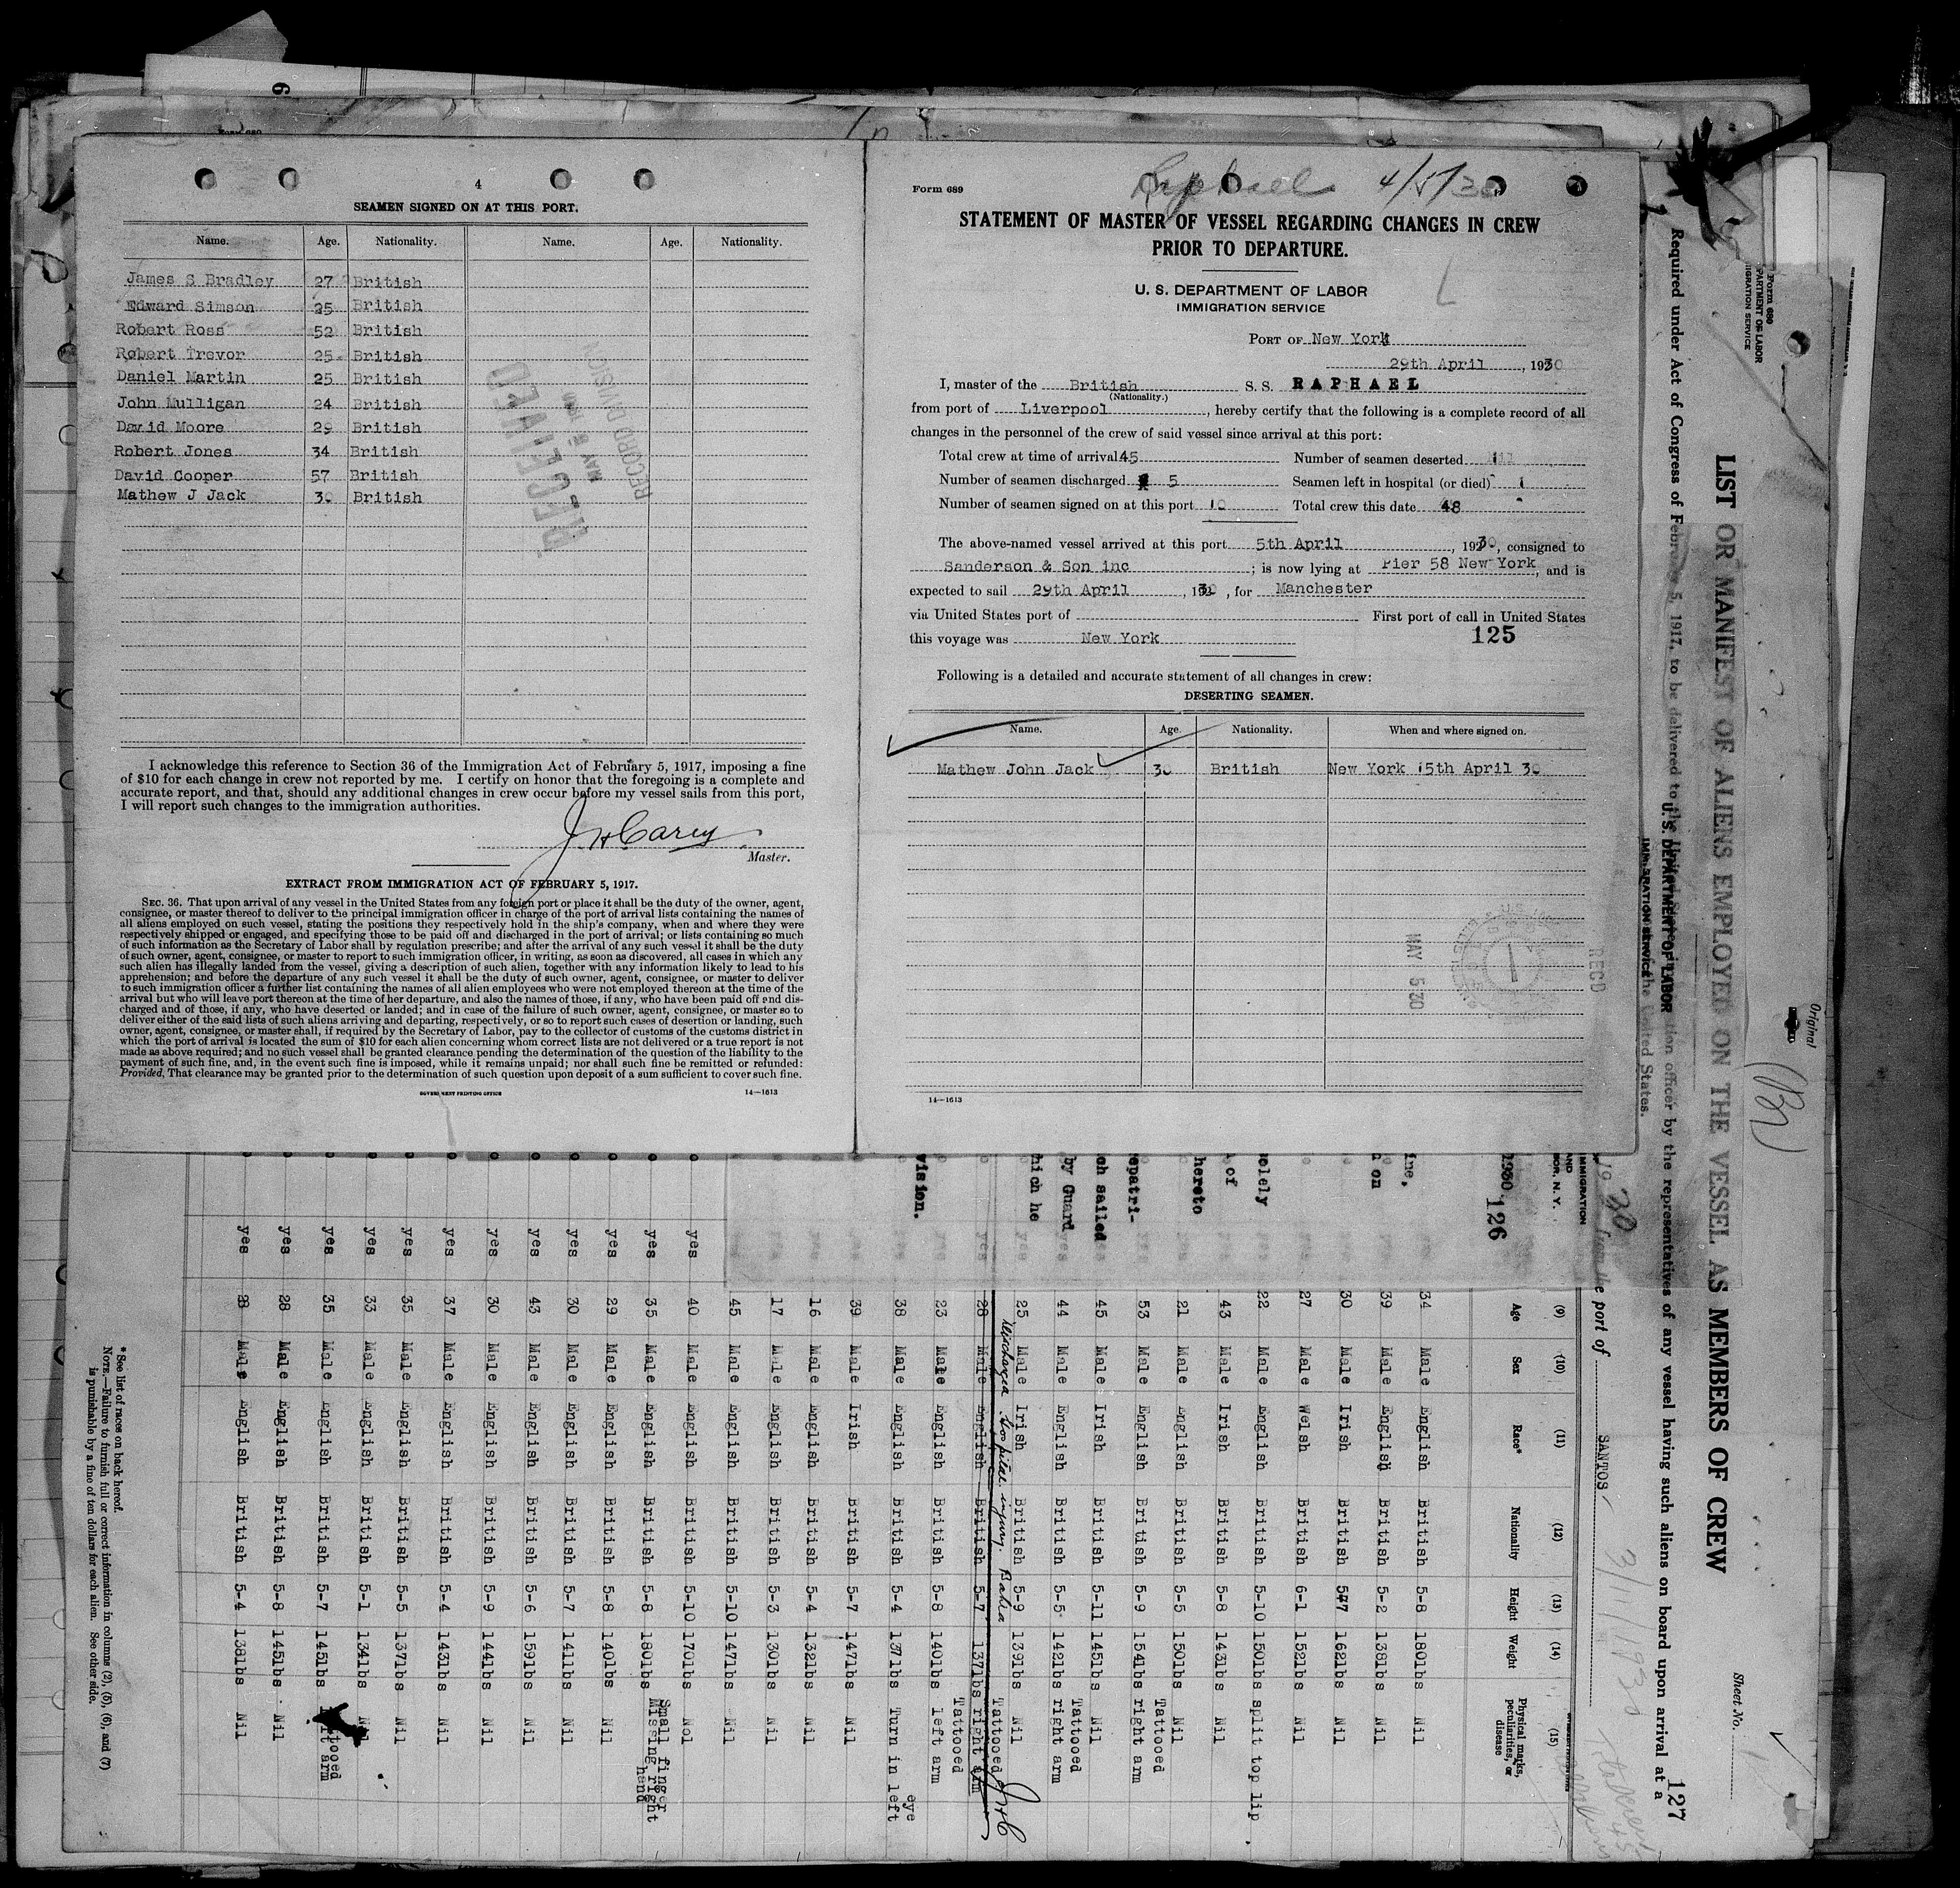 4
SEAMEN SIGNED ON AT THIS PORT.
Name. Age. Nationality. Name. Age. Nationality.
James S Bradley 27 British
Edward Simson 25 British
Robert Ross 52 British
Robert Trevor 25 British
Daniel Martin 25 British
John Mulligan 24 British
David Moore 29 British
Robert Jones 34 British
David Cooper 57 British
Mathew J Jack 30 British
RECEIVED
MAY 5 1930
RECORD DIVISION
I acknowledge this reference to Section 36 of the Immigration Act of February 5, 1917, imposing a fine
of $10 for each change in crew not reported by me. I certify on honor that the foregoing is a complete and
accurate report, and that, should any additional changes in crew occur before my vessel sails from this port,
I will report such changes to the immigration authorities.
J H Carey
Master.
EXTRACT FROM IMMIGRATION ACT OF FEBRUARY 5, 1917.
SEC. 36. That upon arrival of any vessel in the United States from any foreign port or place it shall be the duty of the owner, agent,
consignee, or master thereof to deliver to the principal immigration officer in charge of the port of arrival lists containing the names of
all aliens employed on such vessel, stating the positions they respectively hold in the ship's company, when and where they were
respectively shipped or engaged, and specifying those to be paid off and discharged in the port of arrival; or lists containing so much
of such information as the Secretary of Labor shall by regulation prescribe; and after the arrival of any such vessel it shall be the duty
of such owner, agent, consignee, or master to report to such immigration officer, in writing, as soon as discovered, all cases in which any
such alien has illegally landed from the vessel, giving a description of such alien, together with any information likely to lead to his
apprehension; and before the departure of any such vessel it shall be the duty of such owner, agent, consignee, or master to deliver
to such immigration officer a further list containing the names of all alien employees who were not employed thereon at the time of the
arrival but who will leave port thereon at the time of her departure, and also the names of those, if any, who have been paid off and dis-
charged and of those, if any, who have deserted or landed; and in case of the failure of such owner, agent, consignee, or master so to
deliver either of the said lists of such aliens arriving and departing, respectively, or so to report such cases of desertion or landing, such
owner, agent, consignee, or master shall, if required by the Secretary of Labor, pay to the collector of customs of the customs district in
which the port of arrival is located the sum of $10 for each alien concerning whom correct lists are not delivered or a true report is not
made as above required; and no such vessel shall be granted clearance pending the determination of the question of the liability to the
payment of such fine, and, in the event such fine is imposed, while it remains unpaid; nor shall such fine be remitted or refunded:
Provided, That clearance may be granted prior to the determination of such question upon deposit of a sum sufficient to cover such fine.
GOVERNMENT PRINTING OFFICE 14—1613
Form 689
Raphael 4/5/30
STATEMENT OF MASTER OF VESSEL REGARDING CHANGES IN CREW
PRIOR TO DEPARTURE.
U. S. DEPARTMENT OF LABOR
IMMIGRATION SERVICE
PORT OF New York
29th April, 1930
I, master of the British S. S. RAPHAEL
(Nationality.)
from port of Liverpool, hereby certify that the following is a complete record of all
changes in the personnel of the crew of said vessel since arrival at this port:
Total crew at time of arrival 45 Number of seamen deserted
Number of seamen discharged 5 Seamen left in hospital (or died)
Number of seamen signed on at this port 10 Total crew this date 48
The above-named vessel arrived at this port 5th April, 1930, consigned to
Sanderson & Son inc; is now lying at Pier 58 New York, and is
expected to sail 29th April, 1930, for Manchester
via United States port of First port of call in United States
this voyage was New York 125
Following is a detailed and accurate statement of all changes in crew:
DESERTING SEAMEN.
Name. Age. Nationality. When and where signed on.
Mathew John Jack 30 British New York 15th April 30
MAY 5 30
RECD
14—1613
Form 680
LIST OR MANIFEST OF ALIENS EMPLOYED ON THE VESSEL AS MEMBERS OF CREW
Required under Act of Congress of February 5, 1917, to be delivered to the United States immigration officer by the representatives of any vessel having such aliens on board upon arrival at a
U. S. DEPARTMENT OF LABOR
IMMIGRATION SERVICE
Original
Sheet No.
127
1930 from the port of SANTOS 3/11/1930
126
(9) (10) (11) (12) (13) (14) (15)
Age Sex Race* Nationality Height Weight Physical marks, peculiarities, or disease
34 Male English British 5-8 180lbs Nil
39 Male English British 5-2 138lbs Nil
30 Male Irish British 5-7 162lbs Nil
27 Male Welsh British 6-1 152lbs Nil
22 Male English British 5-10 150lbs split top lip
43 Male Irish British 5-8 143lbs Nil
21 Male English British 5-5 150lbs Nil
53 Male English British 5-9 154lbs Tattooed right arm
45 Male Irish British 5-11 145lbs Nil
44 Male English British 5-5 142lbs Tattooed right arm
25 Male Irish British 5-9 139lbs Nil
Discharged Hospital injury. Bahia
28 Male English British 5-7 137lbs Tattooed right arm
23 Male English British 5-8 140lbs Tattooed left arm
38 Male English British 5-4 137lbs Turn in left eye
39 Male Irish British 5-7 147lbs Nil
16 Male English British 5-4 132lbs Nil
17 Male English British 5-3 130lbs Nil
45 Male English British 5-10 147lbs Nil
yes 40 Male English British 5-10 170lbs Nol
yes 35 Male English British 5-8 180lbs Small finger Missing right hand
yes 29 Male English British 5-8 140lbs Nil
yes 30 Male English British 5-7 141lbs Nil
yes 43 Male English British 5-6 159lbs Nil
yes 30 Male English British 5-9 144lbs Nil
yes 37 Male English British 5-4 143lbs Nil
yes 35 Male English British 5-5 137lbs Nil
yes 33 Male English British 5-1 134lbs Nil
yes 35 Male English British 5-7 145lbs arm
yes 28 Male English British 5-8 145lbs Nil
yes Male English British 5-4 138lbs Nil
* See list of races on back hereof.
NOTE.—Failure to furnish full or correct information in columns (2), (5), (6), and (7)
is punishable by a fine of ten dollars for each alien. See other side.